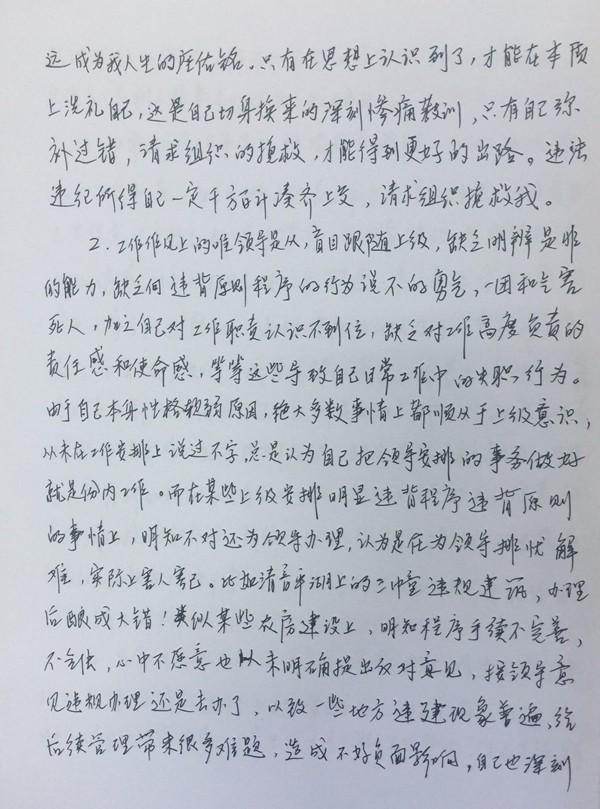 远成为我人生的座佑铭。只有在思想上认识到了，才能在本质
上洗礼自己，这是自己切身换来的深刻惨痛教训，只有自己弥
补过错，请求组织的挽救，才能得到更好的出路。违法
违纪所得自己一定千方百计凑齐上交，请求组织挽救我。
2. 工作作风上的唯领导是从，盲目跟随上级，缺乏明辨是非
的能力，缺乏向违背原则程序的行为说不的勇气，一团和气害
死人，加之自己对工作职责认识不到位，缺乏对工作高度负责的
责任感和使命感，等等这些导致自己日常工作中的失职行为。
由于自己本身性格软弱原因，绝大多数事情上都顺从于上级意识，
从未在工作安排上说过不字，总是认为自己把领导安排的事务做好
就是份内工作。而在某些上级安排明显违背程序违背原则
的事情上，明知不对还为领导办理，认为是在为领导排忧解
难，实际上害人害己。比如清音平湖上的三冲堂违规建筑，办理
后酿成大错！类似某些农房建设上，明知程序手续不完善，
不合法，心中不愿意也从未明确提出反对意见，按领导意
见违规办理还是去办了，以致一些地方违建现象普遍，给
后续管理带来很多难题，造成不好负面影响，自己也深刻